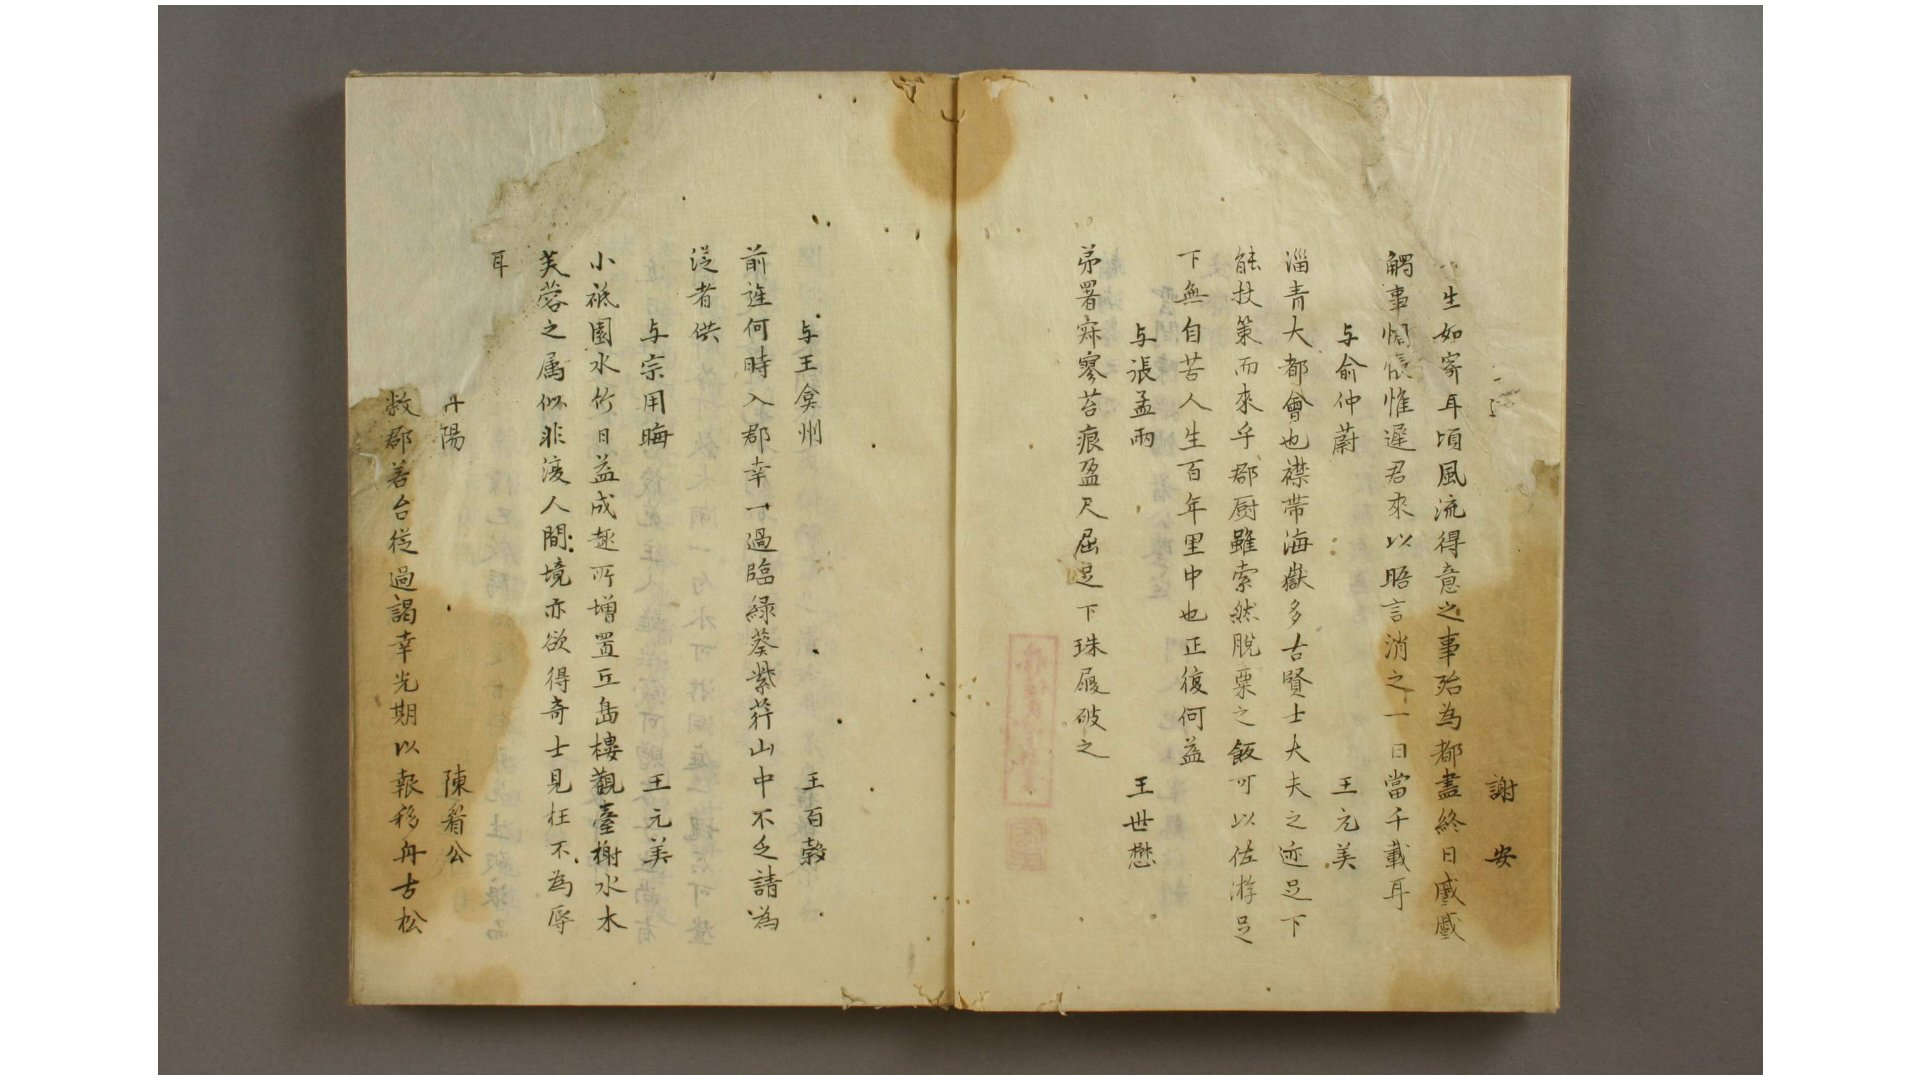 謝安
生如寄耳頃風流得意之事殆為都盡終日慼慼
觸事惆悵惟遲君來以晤言消之一日當千載耳
与俞仲蔚 王元美
淄青大都會也襟帶海嶽多古賢士大夫之迹足下
能扙策而來乎郡厨雖索然脫粟之飯可以佐游足
下無自苦人生百年里中也正復何益
与張孟雨 王世懋
弟署寂寥苔痕盈尺屈足下珠履破之
与王弇州 王百穀
前誰何時入郡幸一過臨緑葵紫莽山中不乏請為
從者供
与宗用晦 王元美
小祗園水竹日益成趣所增置丘島樓觀臺榭水木
芙蓉之属似非復人間境亦欲得奇士見枉不為辱
耳
丹陽 陳眉公
敝郡若台從過謁幸先期以報移舟古松